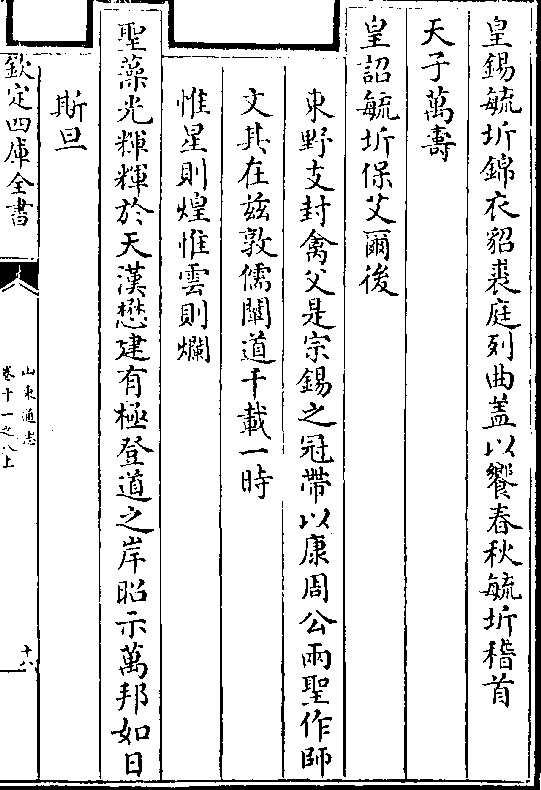 皇錫毓圻錦衣貂裘庭列曲盖以饗春秋毓圻稽首
天子萬壽
皇詔毓圻保艾爾後
東野支封禽父是宗錫之冠帶以康周公兩聖作師
文其在兹敦儒闡道千載一時
惟星則煌惟雲則爛
聖藻光輝輝於天漢懋建有極登道之岸昭示萬邦如日
斯旦
欽定四庫全書
山東通志
卷十一之八上
十八